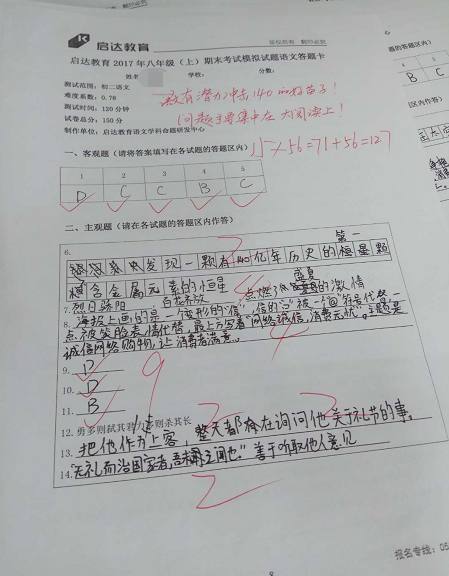 启达教育
版权所有 翻印必究
启达教育 2017 年八年级（上）期末考试模拟试题语文答题卡
姓名 学校： 分数：
测试范围：初二语文
难度系数：0.78
测试时间：120分钟
试卷总分：150分
制作单位：启达教育语文学科命题研发中心
教有潜力冲击140的好苗子！
问题主要集中在大阅读上！
15+56=71+56=127
一、客观题（请将答案填写在各试题的答题区内）
1 2 3 4 5
D C C B C
二、主观题（请在各试题的答题区内作答）
6.
第一
发现一颗有140亿年历史的恒星颗
含金属元素的恒星
盛夏
7. 烈日骄阳 百花齐放 点燃了 的激情
8. 海报上画的是一个变形的“信”，信的“讠”被一个 符号代替 一
点被笑脸表情代替，最上方写着“网络诚信，消费无忧”，主题是
诚信网络购物，让消费者满意。
9. D
10. D
11. B
12. 勇多则弑其君 力多则杀其长
13. 把他作为上客，整天都在询问他关于礼节的事。
14. “无礼而治国家者，吾未之闻也。” 善于听取他人意见
9
4
2
2
报名专线：05
的答题区内）
4 5
B C
区内作答）